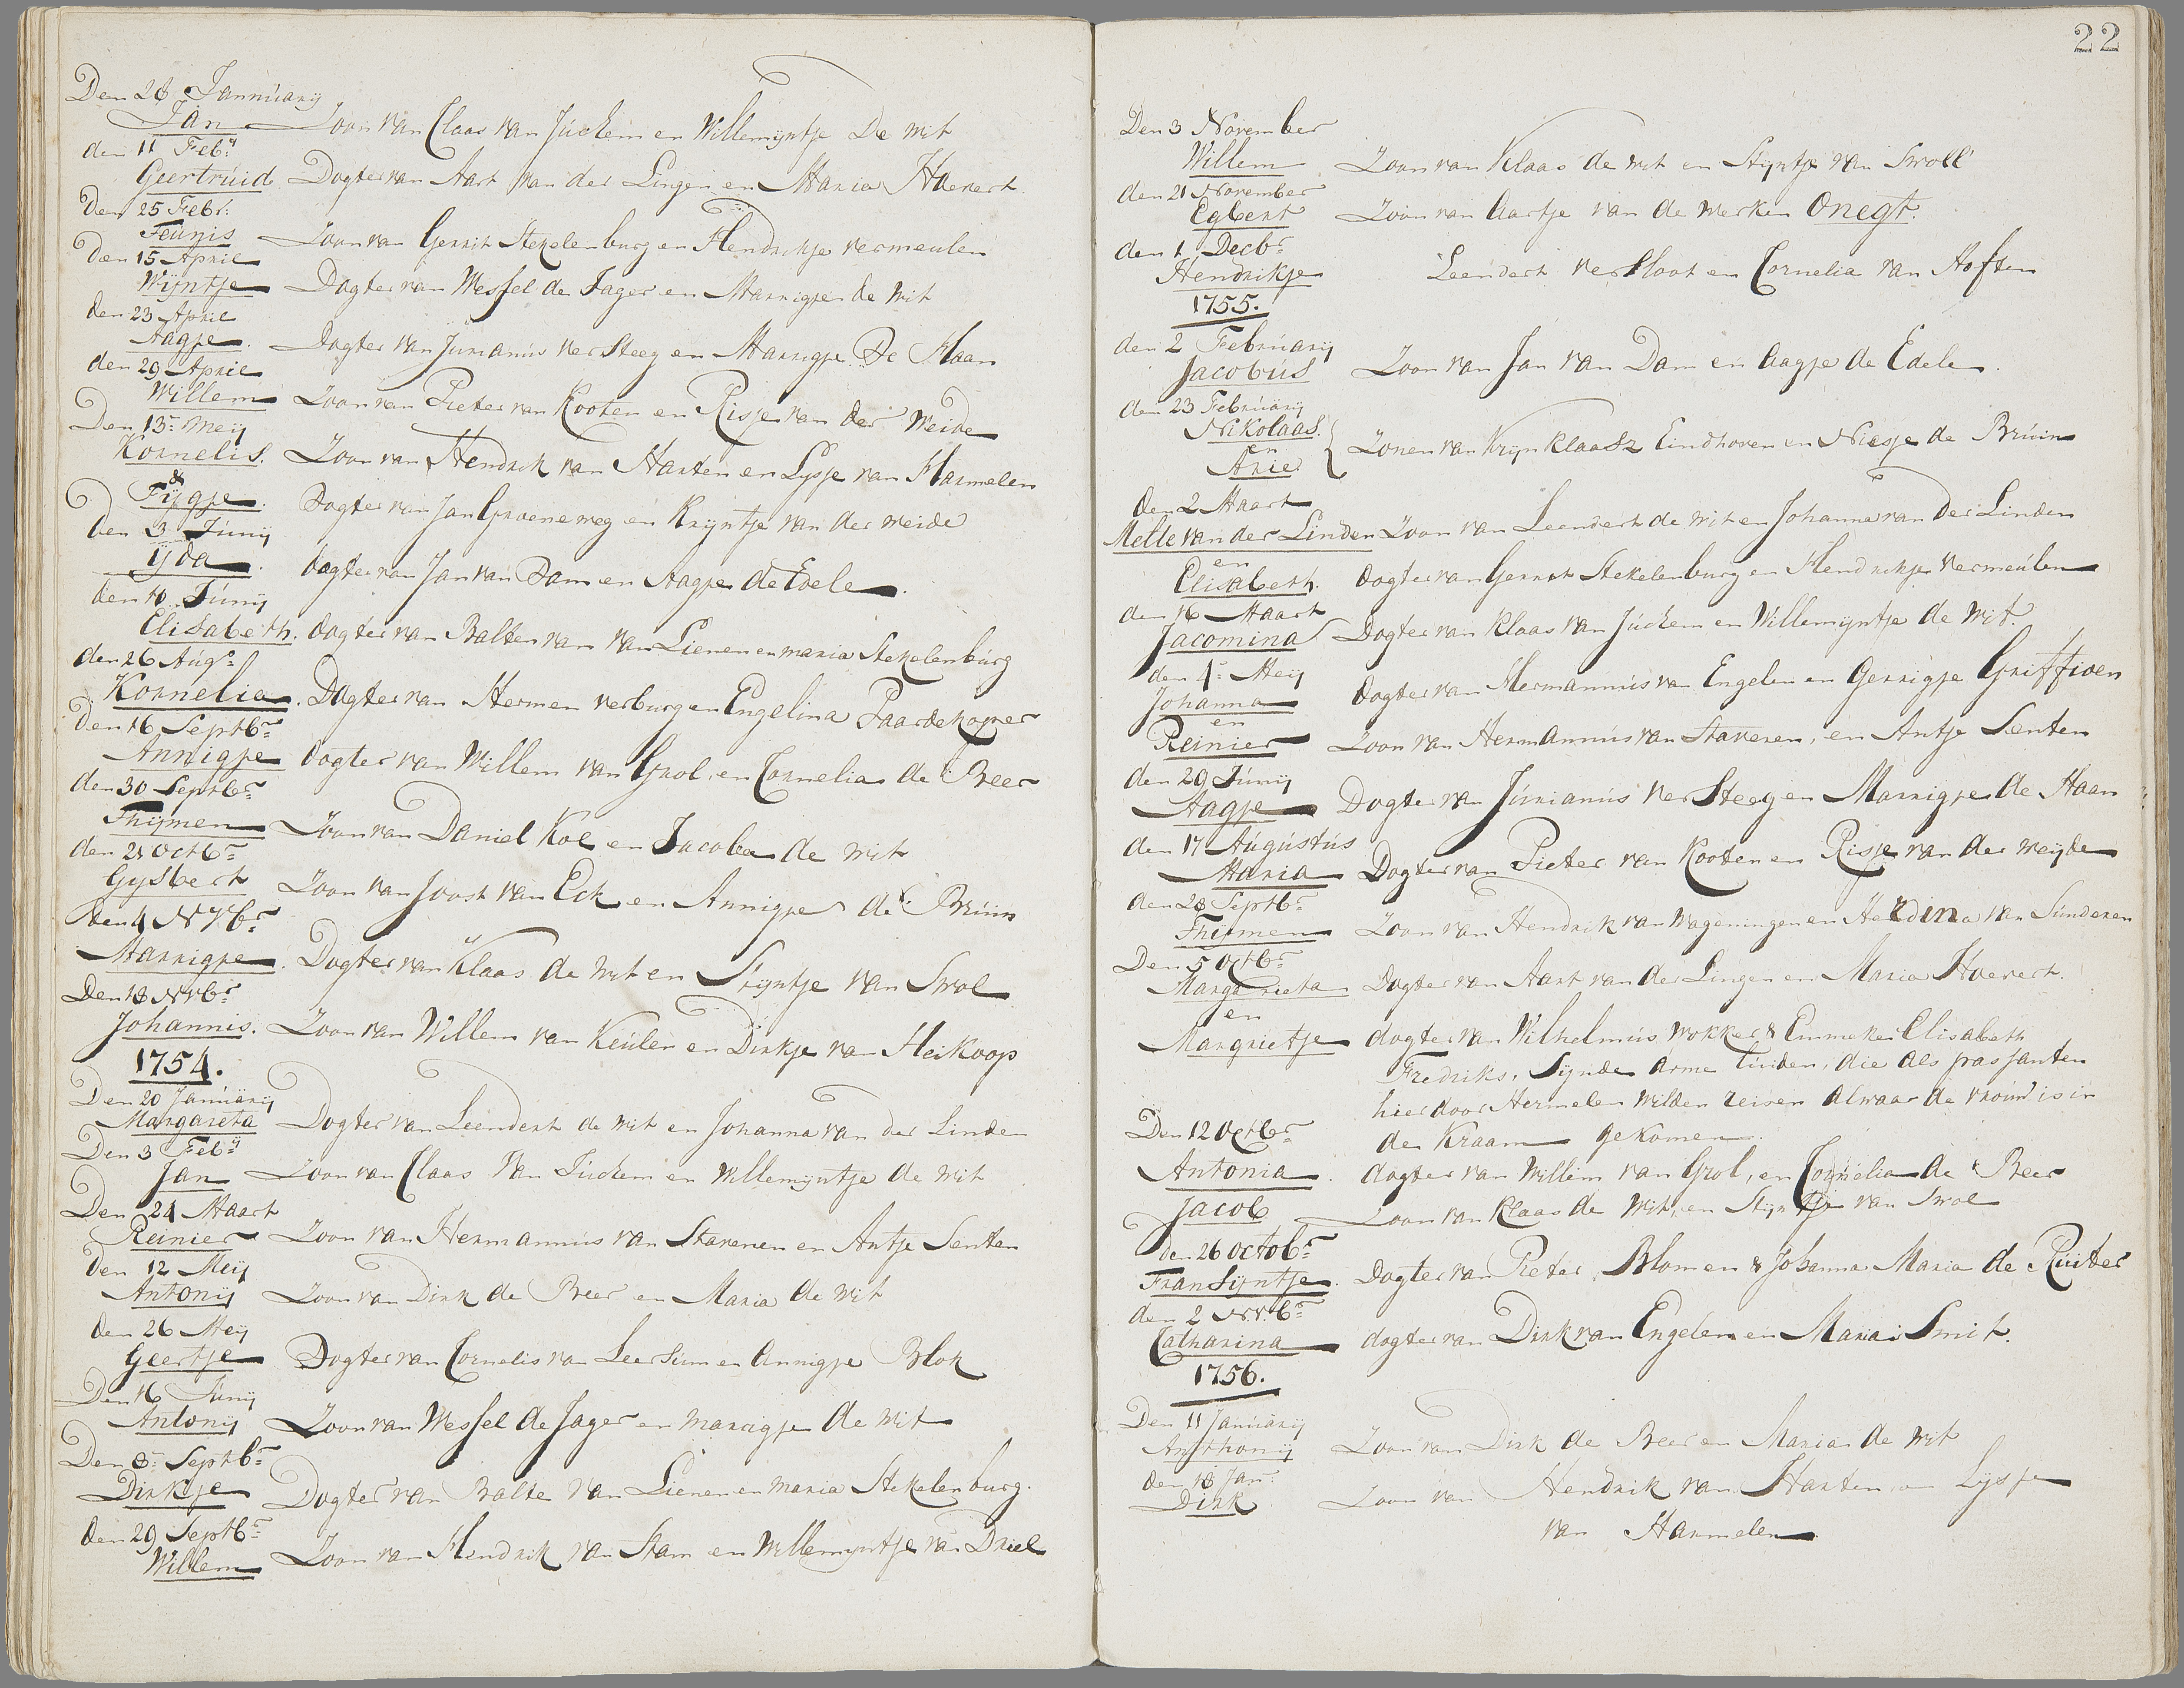 Den 28 Jannúarij
Jan Zoon van Claas van Júchem en Willemijntje De Wit
den 11 Feb:ij
Geertrúid Dogter van Aart van der Lingen en Maria Hoevert
Den 25 Febr:
Teunis Zoon van Gerrit Stekelenburg en Hendrikje vermeulen
Den 15 April
Wijntje Dogter van Wessel de Jager en Marrigje de Wit
den 23 April
Aagje. Dogter van Júrianús Versteeg en Marrigje De Haan
den 29 April
Willem Zoon van Pieter van Kooten en Risje van der Weide
Den 13: Meij
Kornelis. Zoon van Hendrik van Harten en Lysje van Harmelen
&
Fijgje. Dogter van Jan Groeneweg en Krijntje van der weide
den 3 Júnij
ijda. dogter van Jan van Dam en Aagje de Edele.
den 10 Júnij
Elisabeth. dogter van Balten van van Lienen en maria Stekelenbúrg
den 26 Aúgs:
Kornelia. Dogter van Hermen verburg en Engelina Paardekoper
Den 16 Septbr:
Annigje dogter van Willem van Grol, en Cornelia de Beer
den 30 Septbr:
Thijmen Zoon van Daniel Kol en Jacoba de Wit
den 21 Octbr:
Gysbert Zoon van Joost van Eck en Annigje de Brúin
den 4 NVbr
Marrigje. Dogter van Klaas de Wit en Stijntje van Swol
Den 18 NVbr
Johannis. Zoon van Willem van Keúlen en Dirkje van Heikoop
1754.
Den 20 Janúarij
Margareta Dogter van Leendert de Wit en Johanna van der Linden
Den 3 Feb:ij
Jan Zoon van Claas Van Júchem en Willemijntje de Wit
Den 24 Maart
Reinier Zoon van Hermannús van Staveren en Antje Senten
den 12 Meij
Antonij Zoon van Dirk de Beer en Maria de Wit
den 26 Meij
Geertje Dogter van Cornelis van Leersúm en Annigje Blok
Den 16 Júnij
Antonij Zoon van Wessel de Jager en marrigje de Wit
Den 8: Septbr:
Dirkje Dogter van Balte van Lienen en maria Stekelenburg.
den 29 Septbr:
Willem Zoon van Hendrik van Stam en Willemijntje van Driel
22
Den 3 November
Willem Zoon van Klaas de Wit en Stijntje van Swoll
den 21 November
Egbert Zoon van Aartje van de Werken Onegt.
den 1 Decbr:
Hendrikje Leendert verSloot en Cornelia van Hoften
1755.
den 2 Februarij
Jacobús Zoon van Jan van Dam en Aagje de Edele.
den 23 Februarij
Nikolaas.
en
Arie Zonen van Krijn Klaasz Eindhoven en Niesje de Brúin
den 2 Maart
Melle van der Linden Zoon van Leendert de Wit en Johanna van der Linden
en
Elisabeth. dogter van Gerrit Stekelenburg en Hendrikje Vermeúlen
den 16 Maart
Jacomina Dogter van Klaas van Júchem en Willemijntje de Wit.
den 4: Meij
Johanna dogter van Hermannús van Engelen en Gerrigje Griffioen
en
Reinier Zoon van Hermannús van Staveren, en Antje Senten
den 29 Júnij
Aagje Dogter van Júrianús Versteeg en Marrigje de Haan
den 17 Aúgústús
Maria Dogter van Pieter van Kooten en Risje van der weijde
den 28 Septbr:
Thijmen Zoon van Hendrik van Wageningen en Herdina van Súnderen
Den 5 Octbr:
Margarieta Dogter van Aart van der Lingen en Maria Hoevert.
en
Margrietje dogter van Wilhelmús Wokker & Emmeke Elisabeth
Fredriks, Zijnde arme lúiden, die als passanten
hier door Hermelen wilden reisen alwaar de vroúw is in
de Kraam gekomen.
Den 12 Octbr:
Antonia. dogter van Willem van Grol, en Cornelia de Beer
Jacob Zoon van Klaas de Wit, en Stijntje van Swol
den 26 Octobr:
Fransijntje. Dogter van Pieter Blomen & Johanna Maria de Rúiter
den 2 N:V:br:
Catharina dogter van Dirk van Engelen en Maria Smit.
1756.
Den 11 Janúarij
Anthonij Zoon van Dirk de Beer en Maria de Wit
den 18 Jan:
Dirk Zoon van Hendrik van Harten, en Lijsje
van Harmelen